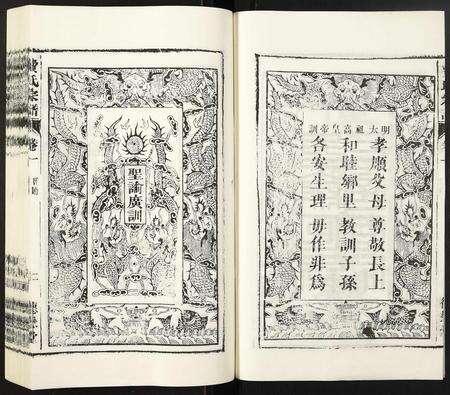 明太祖高皇帝訓
孝順父母 尊敬長上
和睦鄉里 教訓子孫
各安生理 毋作非爲
聖諭廣訓
氏宗譜
卷一